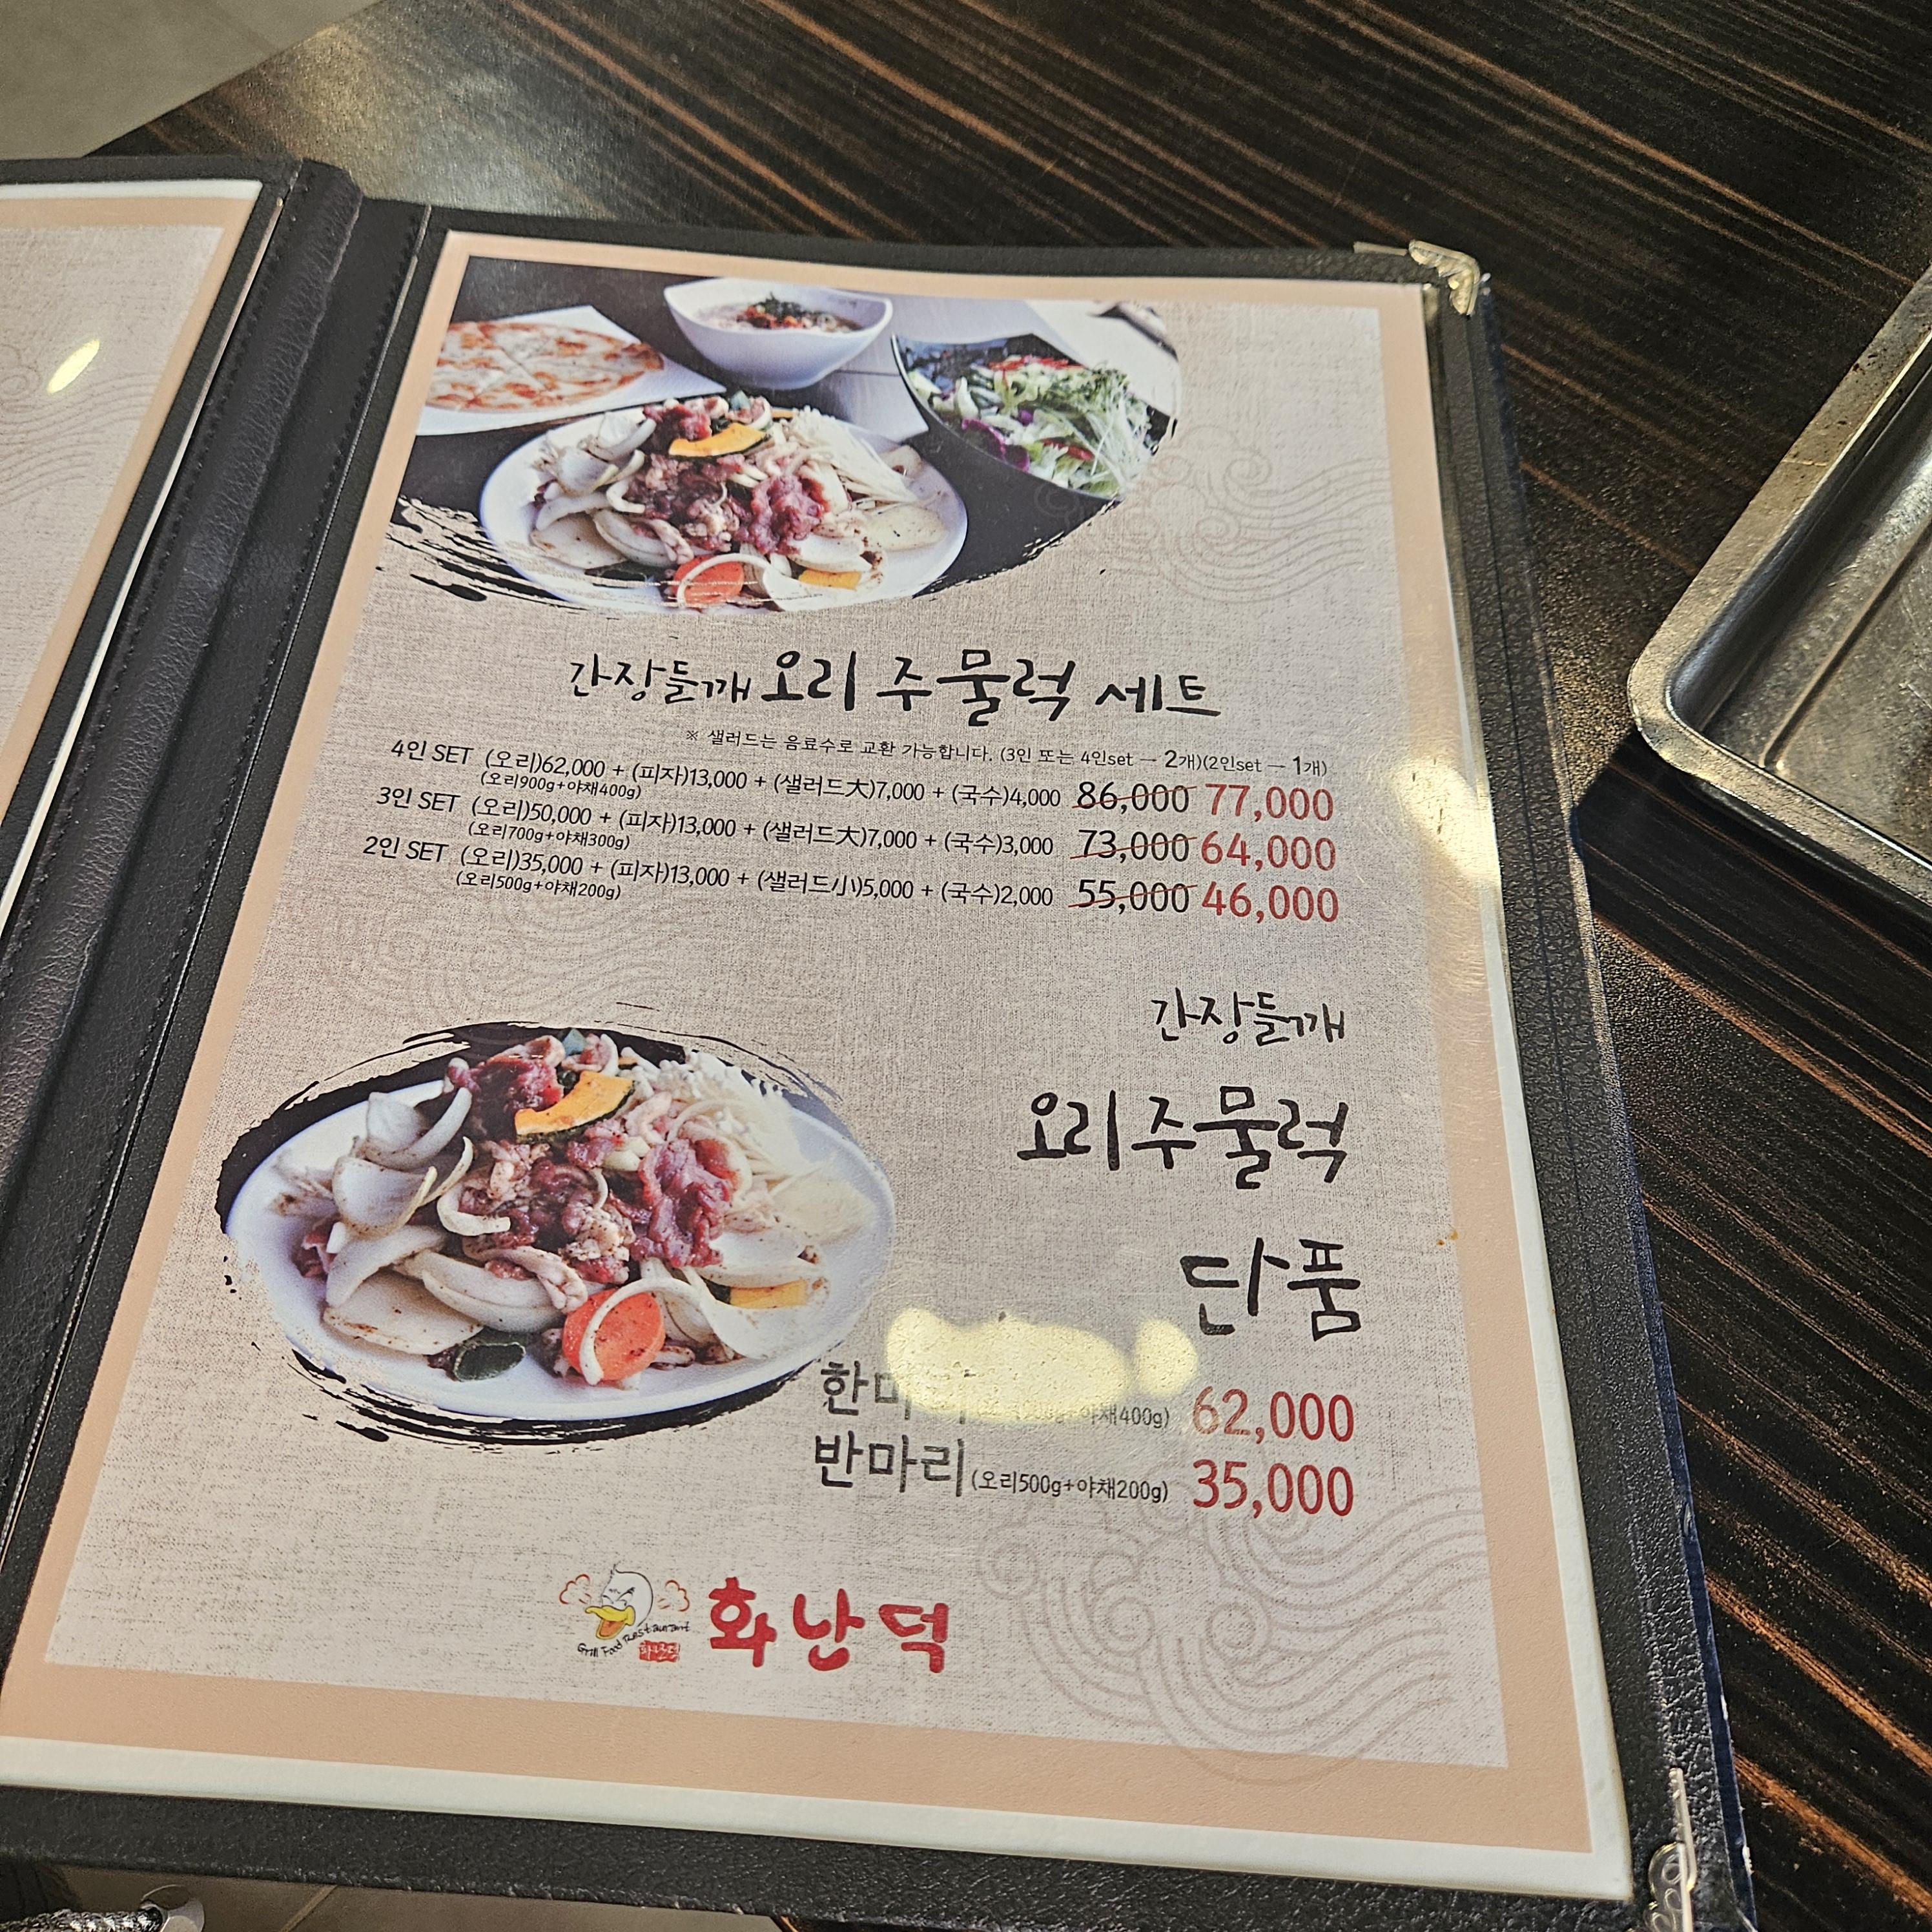 간장들깨 오리 주물럭 세트
※ 샐러드는 음료수로 교환 가능합니다. (3인 또는 4인set → 2개)(2인set → 1개)
4인 SET (오리)62,000 + (피자)13,000 + (샐러드大)7,000 + (국수)4,000 86,000 77,000
(오리900g+야채400g)
3인 SET (오리)50,000 + (피자)13,000 + (샐러드大)7,000 + (국수)3,000 73,000 64,000
(오리700g+야채300g)
2인 SET (오리)35,000 + (피자)13,000 + (샐러드小)5,000 + (국수)2,000 55,000 46,000
(오리500g+야채200g)
간장들깨
오리주물럭
단품
야채400g) 62,000
반마리 (오리500g+야채200g) 35,000
Grill Food Restaurant
화난덕
화난덕